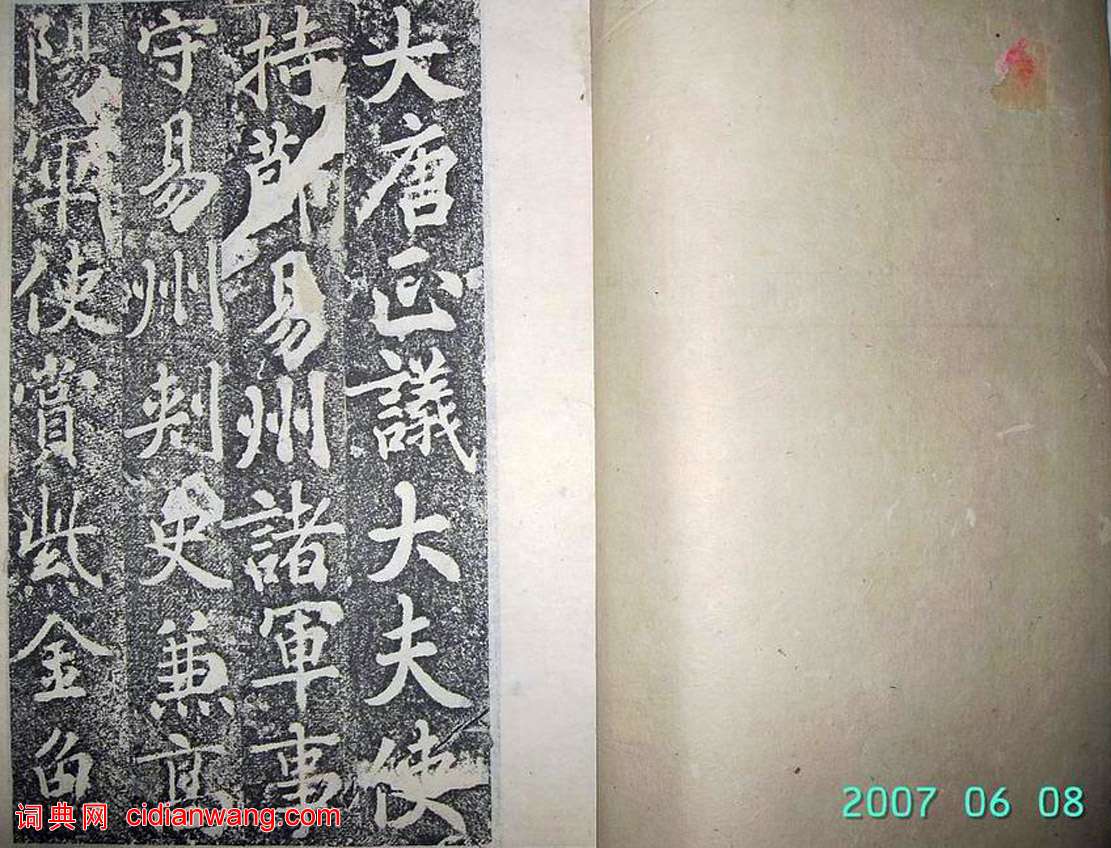 大唐正議大夫使
持節易州諸軍事
守易州刺史兼高
陽軍使賞紫金魚
词典网 cidianwang.com
2007 06 08